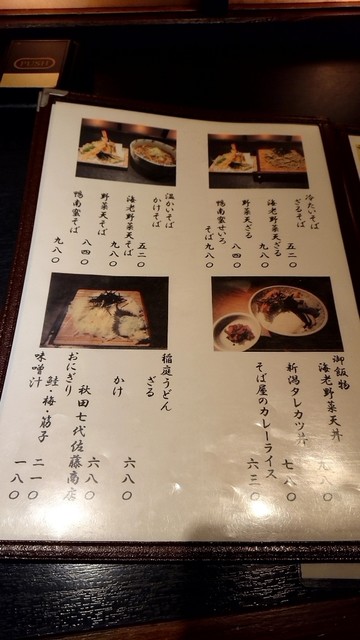 PUSH
冷たいそば
ざるそば 五二〇
海老野菜天ざる 九八〇
野菜天ざる 八四〇
鴨南蛮せいろ
そば 九八〇
温かいそば
かけそば 五二〇
海老野菜天そば 九八〇
野菜天そば 八四〇
鴨南蛮そば 九八〇
御飯物
海老野菜天丼 九八〇
新潟タレカツ丼 七八〇
そば屋のカレーライス 六三〇
稲庭うどん
ざる 六八〇
かけ 六八〇
秋田七代佐藤商店
おにぎり
鮭・梅・筋子 二一〇
味噌汁 一八〇